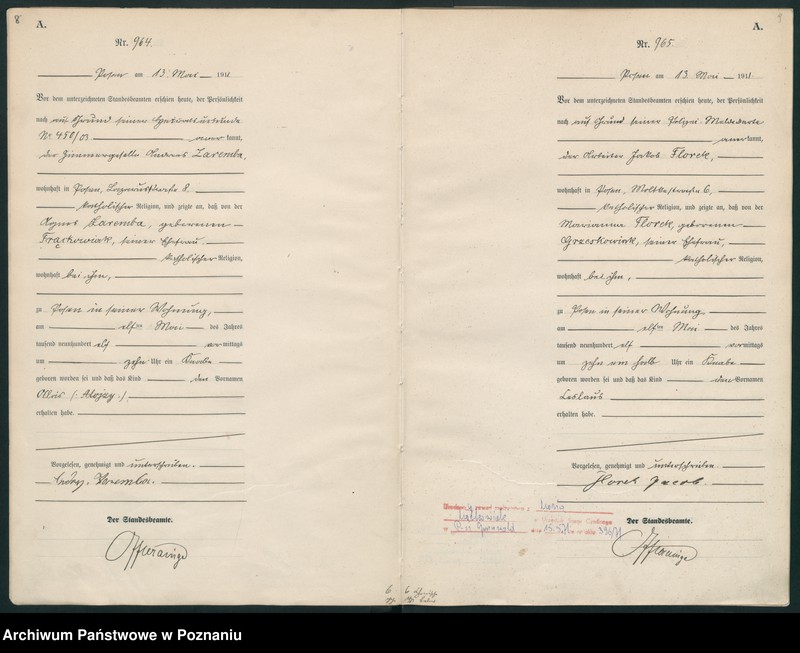 8
A.
Nr. 964.
Posen am 13. Mai 1911
Vor dem unterzeichneten Standesbeamten erschien heute, der Persönlichkeit
nach auf Grund seiner
Nr. 450/03 anerkannt,
der Zimmergeselle Andreas Zaremba,
wohnhaft in Posen, Lazarusstraße 8.
katholischer Religion, und zeigte an, daß von der
Agnes Zaremba, geborenen
Frąckowiak, seiner Ehefrau,
katholischer Religion,
wohnhaft bei ihm,
zu Posen in seiner Wohnung,
am elften Mai des Jahres
tausend neunhundert elf vormittags
um zehn Uhr ein Knabe
geboren worden sei und daß das Kind den Vornamen
Alois (: Alojzy :)
erhalten habe.
Vorgelesen, genehmigt und unterschrieben.
Andrzej Zaremba.
Der Standesbeamte.
9
A.
Nr. 965.
Posen am 13. Mai 1911
Vor dem unterzeichneten Standesbeamten erschien heute, der Persönlichkeit
nach auf Grund seiner Polizei-Meldekarte
anerkannt,
der Arbeiter Jakob Florek,
wohnhaft in Posen, Moltkestraße 6,
katholischer Religion, und zeigte an, daß von der
Marianna Florek, geborenen
Grzeskowiak, seiner Ehefrau,
katholischer Religion,
wohnhaft bei ihm,
zu Posen in seiner Wohnung
am elften Mai des Jahres
tausend neunhundert elf vormittags
um zehn ein halb Uhr ein Knabe
geboren worden sei und daß das Kind den Vornamen
Ceslaus
erhalten habe.
Vorgelesen, genehmigt und unterschrieben.
Florek Jacob
Der Standesbeamte.
Archiwum Państwowe w Poznaniu